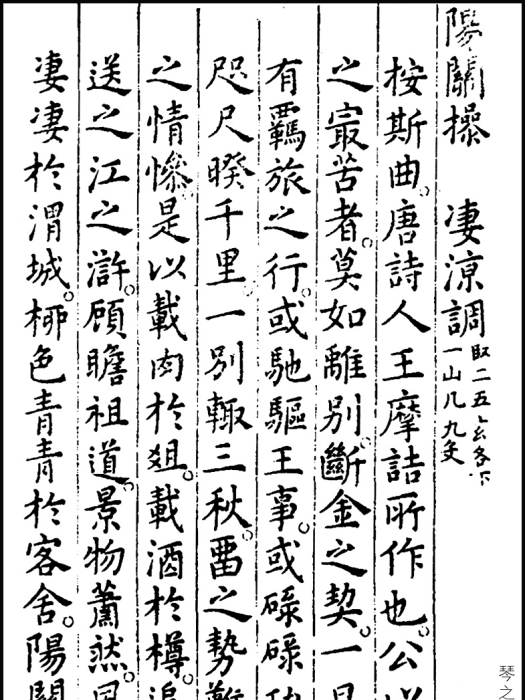 陽關操 淒涼調 取二五各下一山凡九㕛
按斯曲。唐詩人王摩詰所作也。公
之最苦者。莫如離別。斷金之契。一旦
有羈旅之行。或馳驅王事。或碌碌
咫尺暌千里。一別輙三秋。畱之勢難
之情慘。是以載肉於俎。載酒於樽。追
送之江之滸。顧瞻祖道。景物蕭然。風
淒淒於渭城。栁色青青於客舍。陽關
琴之